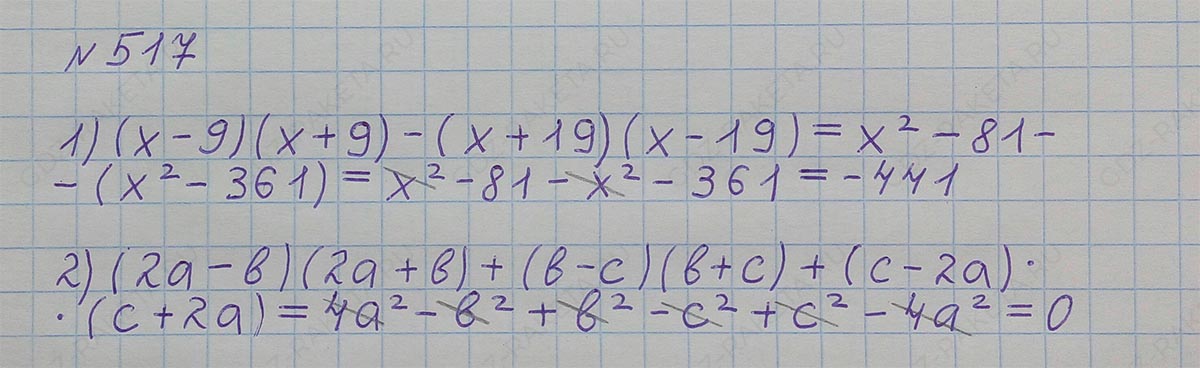 № 517
1) (x - 9)(x + 9) - (x + 19)(x - 19) = x² - 81 -
- (x² - 361) = x² - 81 - x² - 361 = -441
2) (2a - b)(2a + b) + (b - c)(b + c) + (c - 2a) ·
· (c + 2a) = 4a² - b² + b² - c² + c² - 4a² = 0